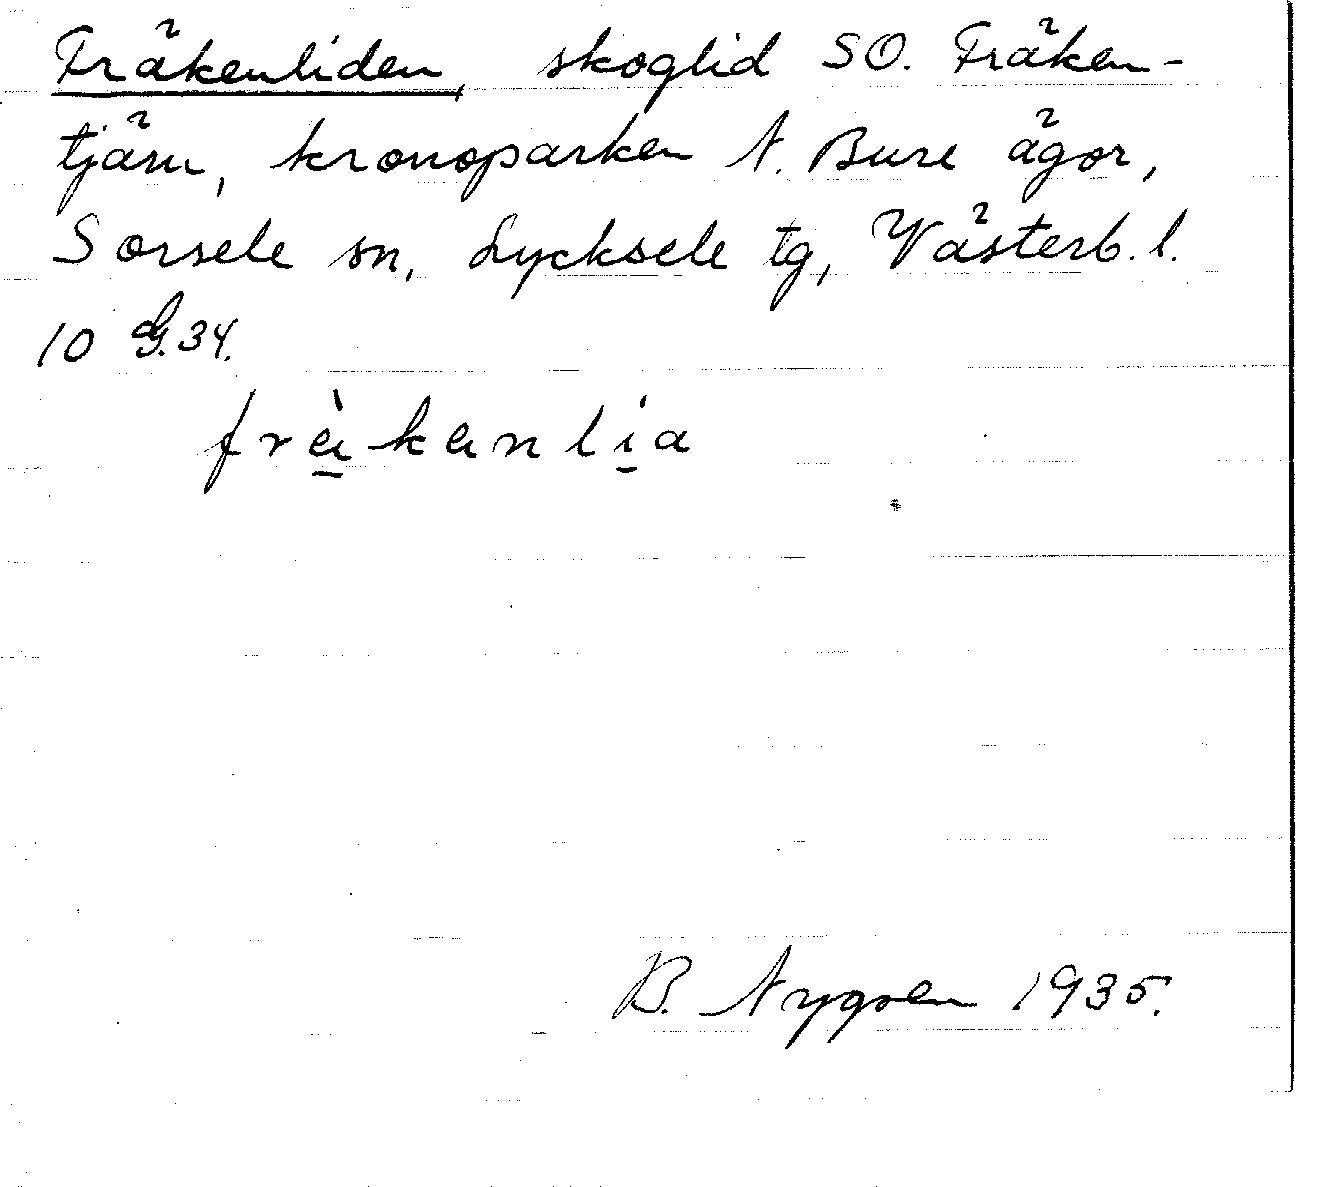 Fräkenliden, skoglid SO. Fräken-
tjärn, kronoparken N. Bure ägor,
Sorsele sn, Lycksele tg, Västerb. l.
10 G.34.
frὰ̱kanli̱a
B. Nygren 1935.